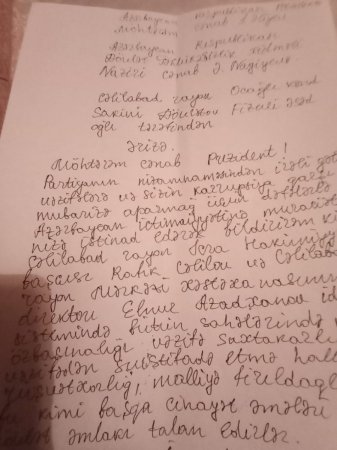 Azərbaycan Respublikası Prezidenti
Möhtərəm cənab İ. Əliyev
Azərbaycan Respublikası
Dövlət Təhlükəsizlik Xidməti
Naziri cənab Ə Nağıyev
Cəlilabad rayon Ocaqlı kənd
Sakini Dövlətov Fizuli Əsəd
oğlu tərəfindən
Ərizə.
Möhtərəm cənab Prezident!
Partiyanın nizamnaməsindən irəli gə
vəzifələrə və sizin karrupsiya qarşı
mübarizə aparmaq üçün dəfələrlə
Azərbaycan ictimaiyyətinə muraciə
nizə istinad edərək bildirirəm ki
Cəlilabad rayon İcra Hakimiyyə
başçısı Rafik Cəlilov və Cəlilaba
rayon Mərkəzi xəstəxanasının
direktoru Elnur Azadxanov id
sistemində bütün sahələrində
özbaşınalığı vəzifə saxtakarlı
vəzifədən suistifadə etmə hall
rüşvətxorlığı, malliyə fırıldaql
kimi başqa cinayət əməllər
əmlakı talan edirlər.